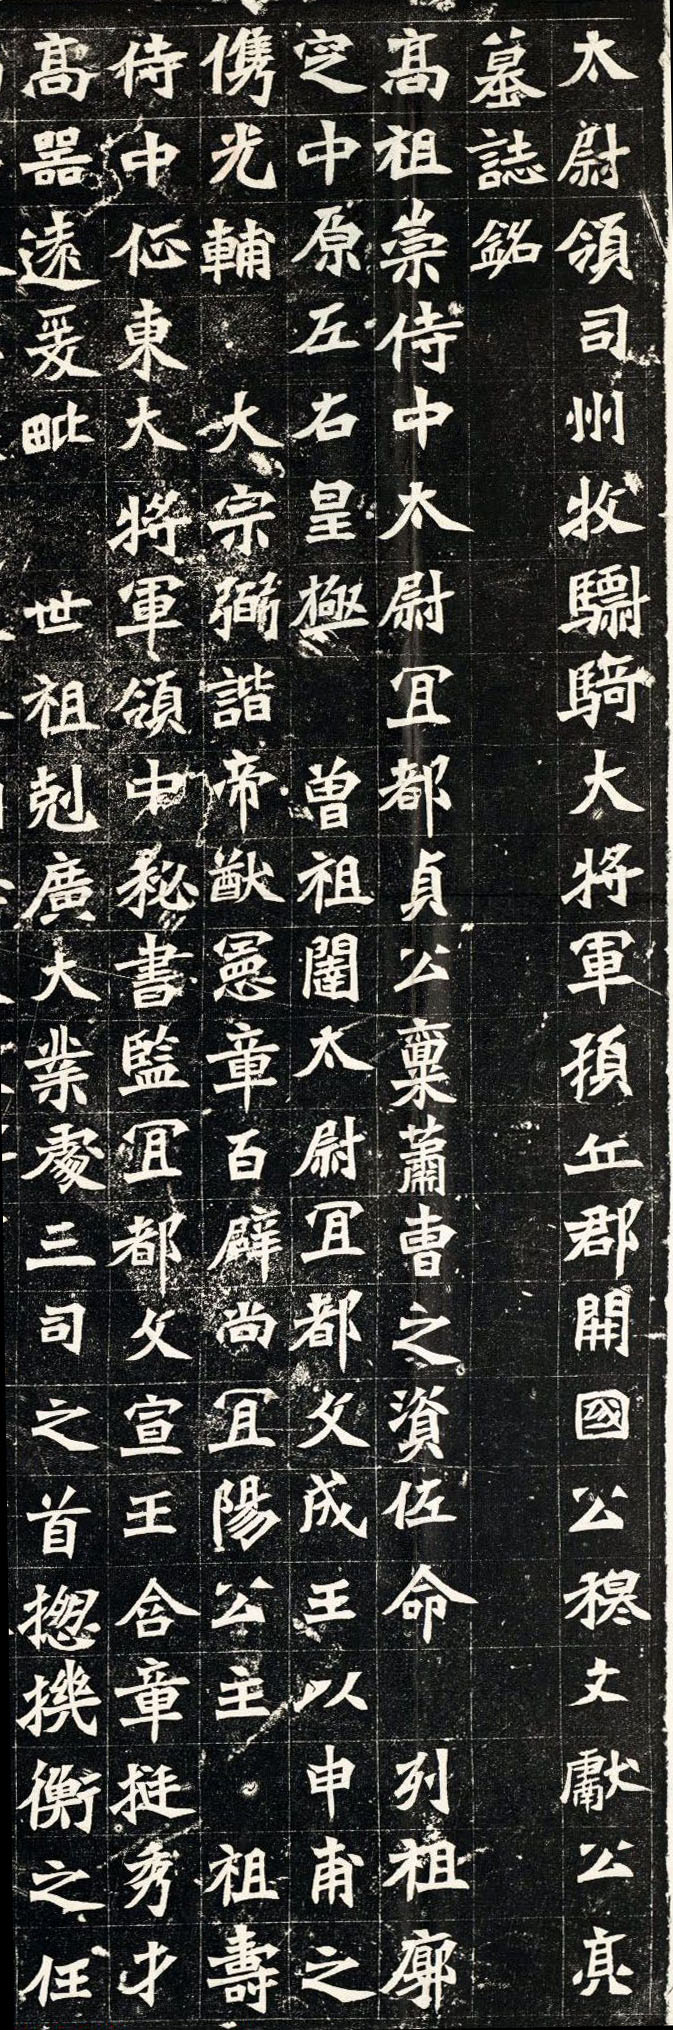 太尉領司州牧驃騎大將軍頓丘郡開國公穆文獻公亮
墓誌銘
高祖崇侍中太尉冝都貞公稟蕭曹之資佐命 列祖廓
定中原左右皇極 曽祖闥太尉冝都文成王以申甫之
儁光輔 大宗弼諧帝猷憲章百辟尚冝陽公主 祖壽
侍中征東大將軍領中秘書監冝都文宣王含章挺秀才
高器遠爰毗 世祖剋廣大業處三司之首揔機衡之任